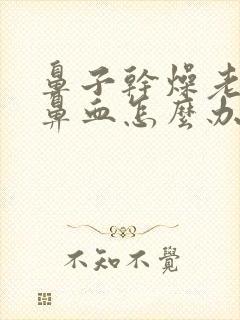 鼻子幹燥老
鼻血怎麼办
不知不覺